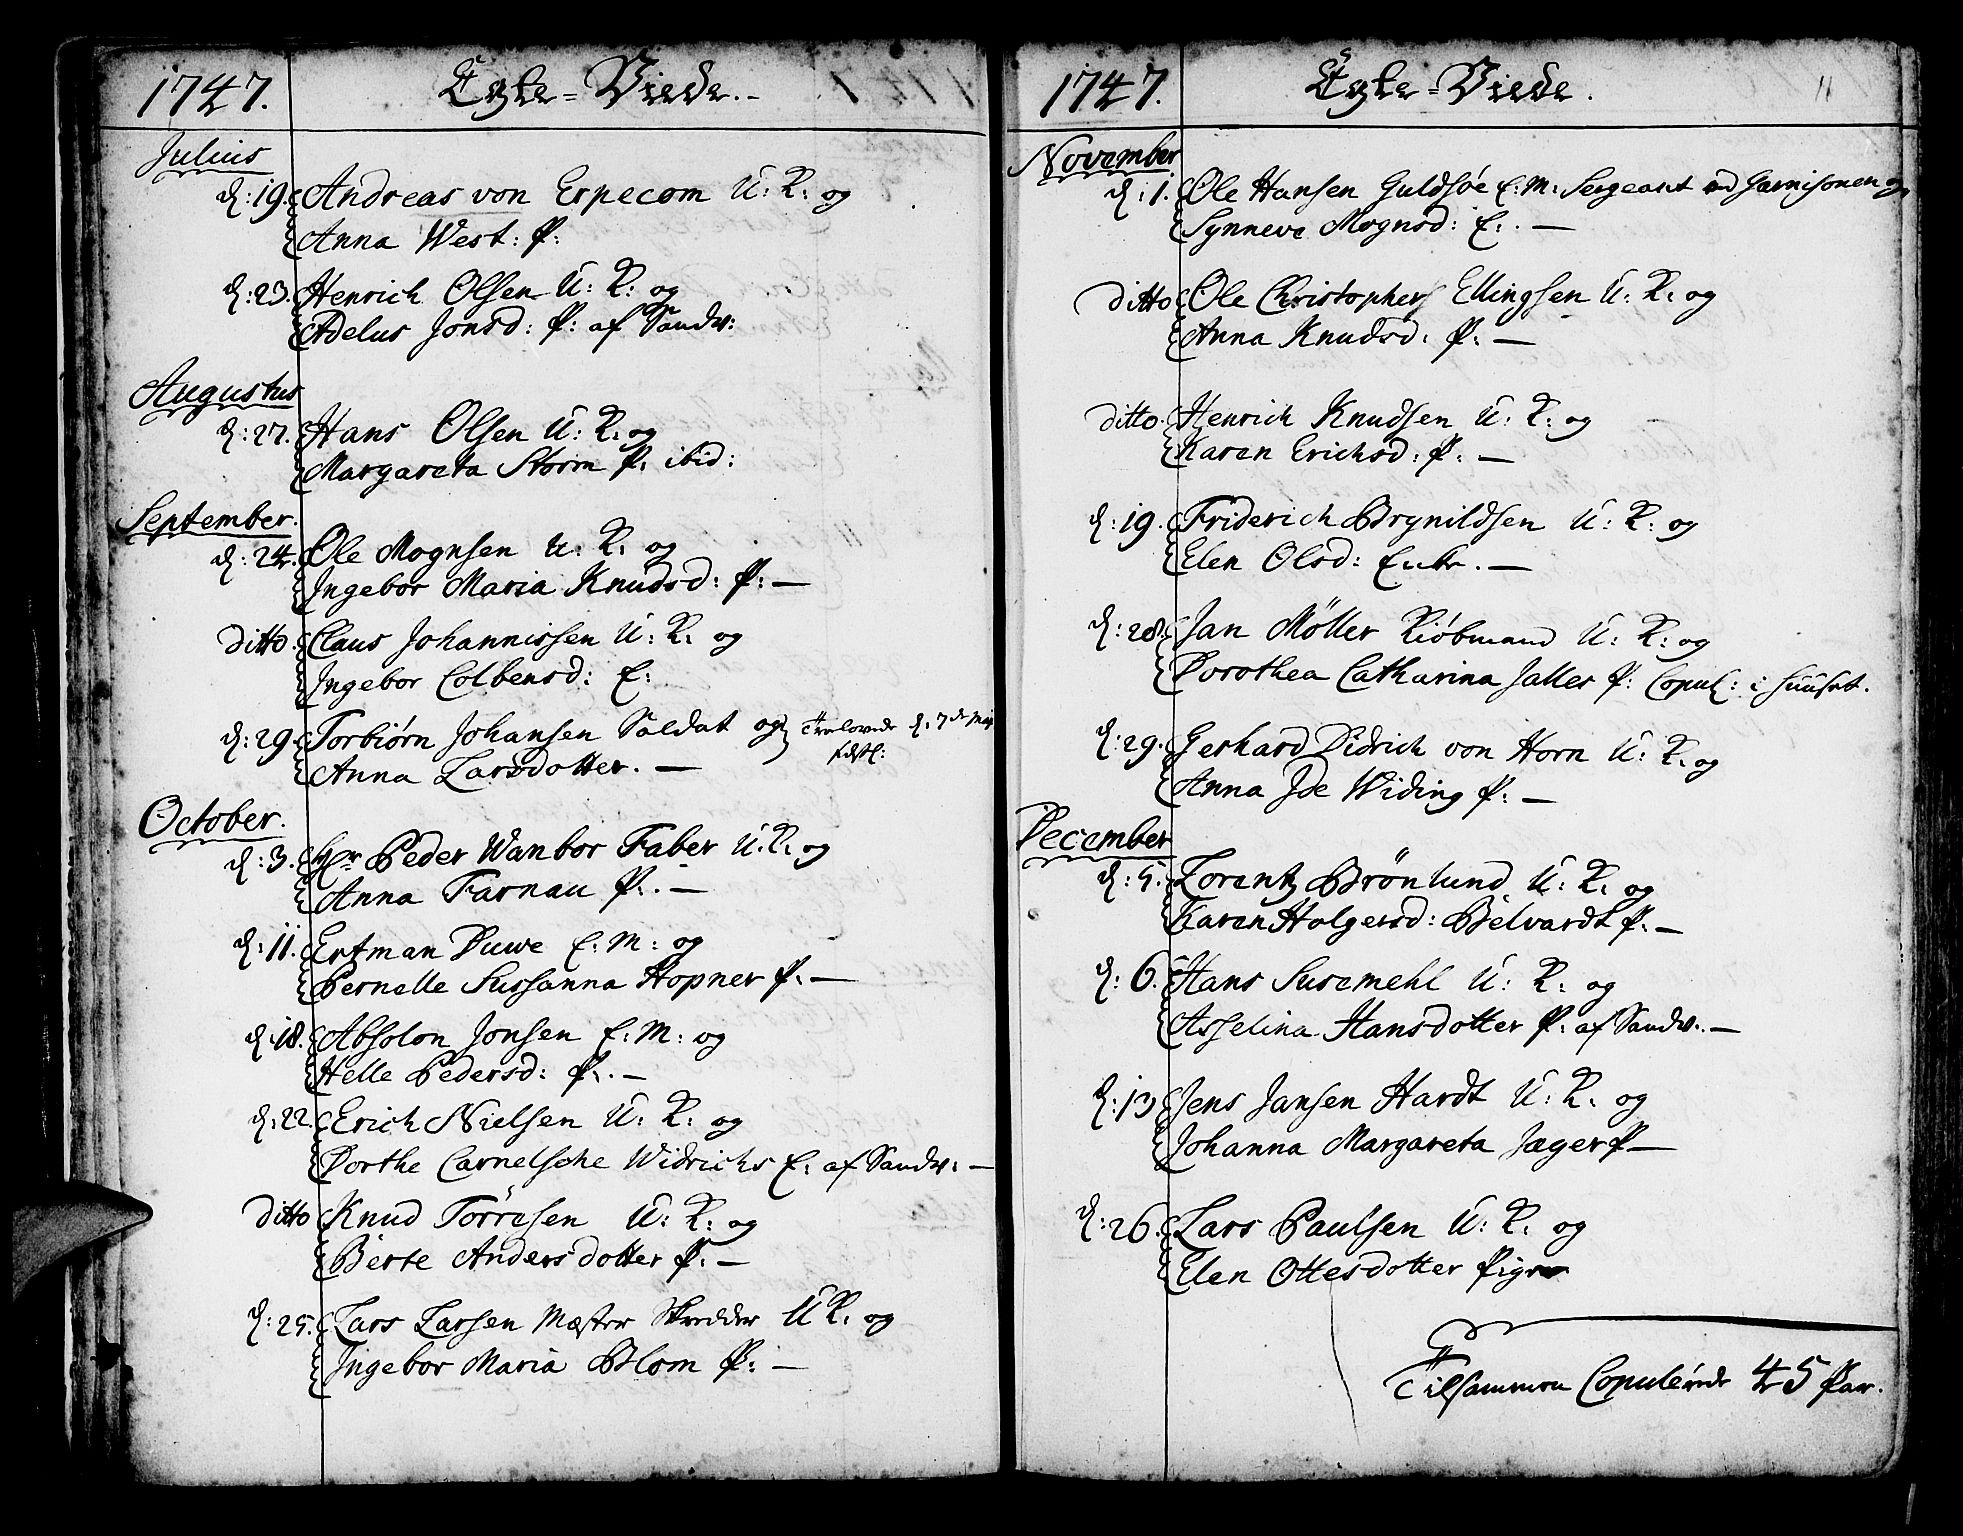 1747. Ægte-Viede.
Julius
d: 19. Andreas von Erpecom U: K: og
Anna West: P:
d: 23. Henrich Olsen U: K: og
Adelus Jonsd: P: af Sandv:
Augustus
d: 27. Hans Olsen U: K: og
Margareta Storm P. ibid:
September.
d: 24. Ole Mognsen U: K: og
Ingebor Maria Knudsd: P: —
Ditto. Claus Johannissen U: K: og
Ingebor Colbensd: E:
d: 29. Torbiørn Johansen Soldat og Trolovede d: 7de Maji
Anna Larsdotter. —
October.
d: 3. Hr Peder Wanbor Faber U. K: og
Anna Farnau P. . —
d: 11. Ertman Duwe E: M: og
Pernelle Sussanna Hopner P. —
d: 18. Absolon Jonsen E: M: og
Helle Pedersd: P. . —
d: 22. Erich Nielsen U: K: og
Dorthe Carnelsche Widrichs E: af Sandv: —
Ditto Knud Törresen U: K: og
Berte Andersdotter P. —
d: 25. Lars Larsen Mæster Skredder U K. og
Ingebor Maria Blom P: —
1747. Ægte-Viede. 11
November
d: 1. Ole Hansen Guldsøe E: M: Sergeant ved Garnisonen og
Synneve Mognsd: E: . —
Ditto Ole Christophers Ellingsen U: K: og
Anna Knudsd: P: —
Ditto. Henrich Knudsen U: K: og
Karen Erichsd: P: —
d: 19. Friderich Brynildsen U: K: og
Elen Olsd: Enke. —
d: 28. Jan Möller Kiøbmand U: K: og
Dorothea Catharina Jalles P: Copul: i Huuset.
d: 29. Gerhard Didrich von Horn U: K. og
Anna Ide Widing P: —
December
d: 5. Lorentz Brönlund U: K: og
Karen Holgersd: Belvardt P. —
d: 6. Hans Susemehl U: K: og
Asselina Hansdotter P. af Sandv. —
d: 13 Jens Jansen Hardt U: K. og
Johanna Margareta Jæger P —
d: 26. Lars Paulsen U: K: og
Elen Ottesdotter Pige
Tilsammen Copulerede 45 Par.